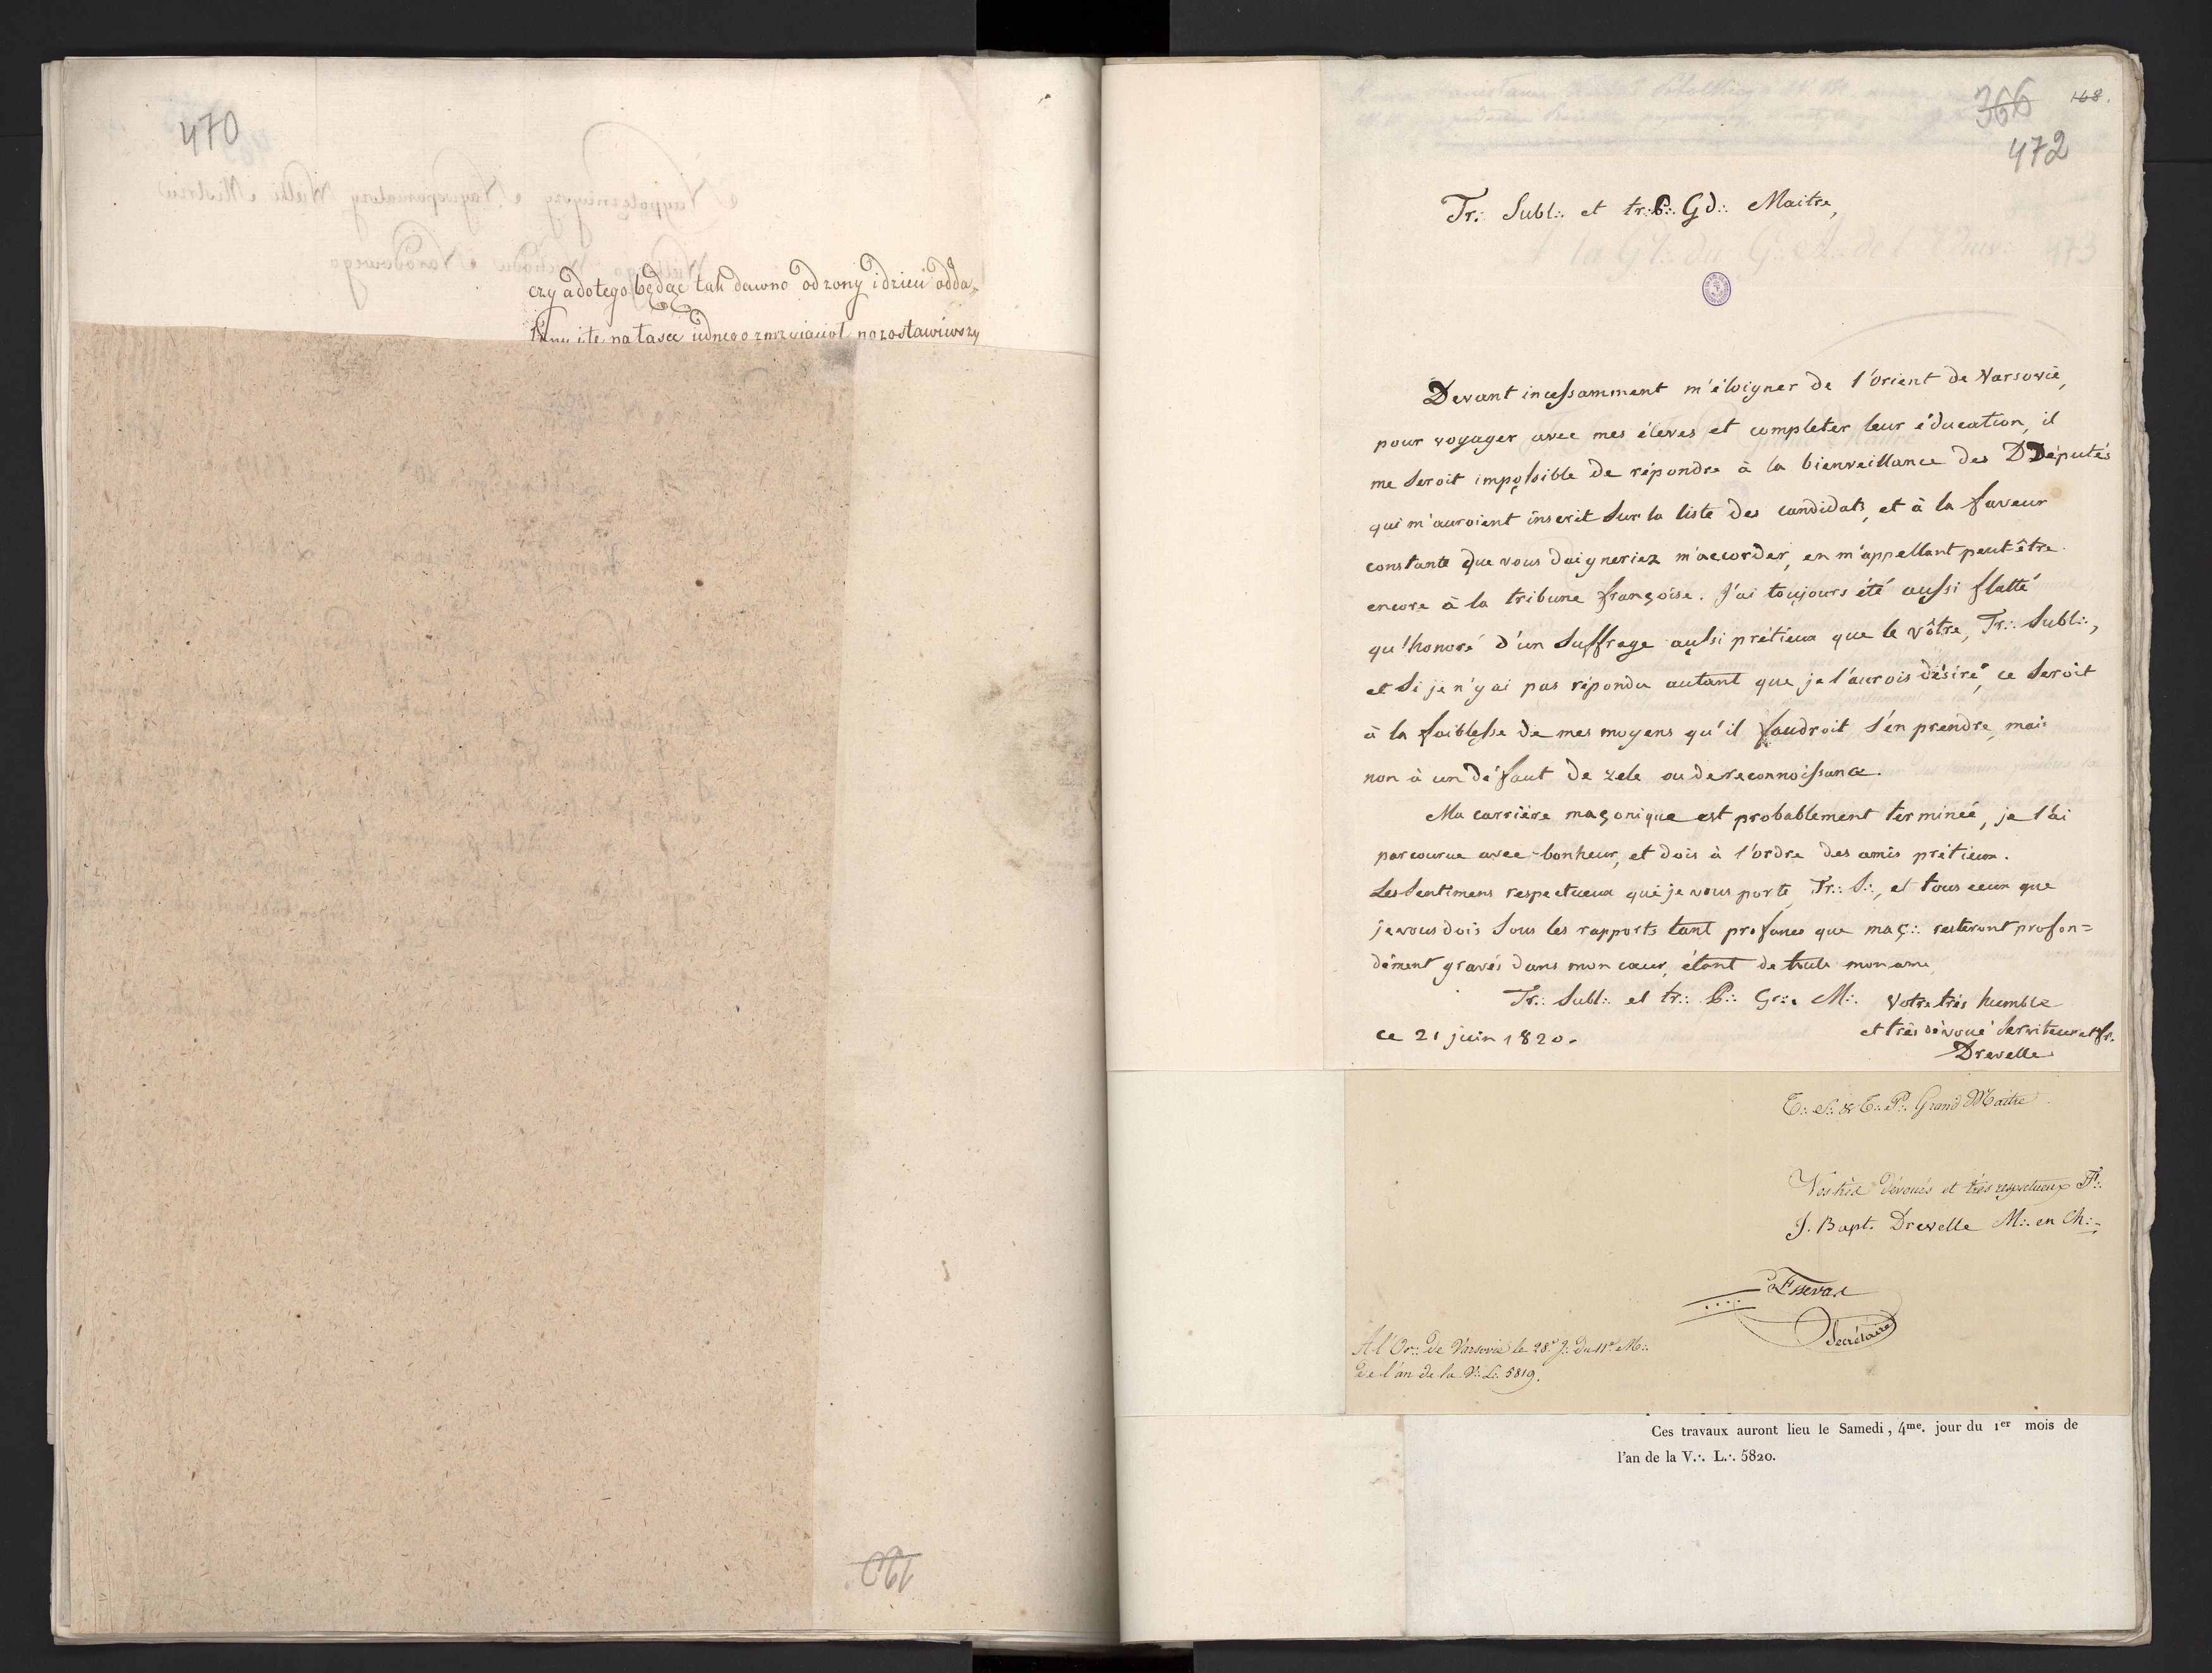 470
czy a dotego będąc tak dawno od zony i dzieci odda„
366
168.
472
Tr∴ Subl∴ et tr∴ P∴ Gd∴ Maitre,
Devant incessamment m'éloigner de l'orient de Varsovie,
pour voyager avec mes éleves et completer leur éducation, il
me seroit impossible de répondre à la bienveillance des DDéputés
qui m'auroient inscrit sur la liste des candidats, et à la faveur
constante que vous daigneriez m'accorder, en m'appellant peut être
encore à la tribune françoise. J'ai toujours été aussi flatté
qu'honoré d'un suffrage aussi prétieux que le vôtre, Tr∴ Subl∴,
et si je n'y ai pas répondu autant que je l'aurois désiré, ce seroit
à la foiblesse de mes moyens qu'il faudroit s'en prendre, mais
non à un défaut de zele ou de reconnoissance.
Ma carrière maçonique est probablement terminée, je l'ai
parcourue avec bonheur, et dois à l'ordre des amis prétieux.
Les sentimens respectueux que je vous porte, Tr∴ S∴, et tous ceux que
je vous dois sous les rapports tant profanes que maç∴ resteront profon=
dément gravés dans mon cœur, étant de toute mon ame,
Tr∴ Subl∴ et tr∴ P∴ Gr∴ M∴ Votre très humble
et très dévoué serviteur et fr.
ce 21 juin 1820.
Drevelle
T∴ S∴ & T∴ P∴ Grand Maitre
Vos très dévoués et très respectueux FF∴
J. Bapt. Drevelle M∴ en Ch∴
Secrétaire
A l'Or∴ de Varsovie le 28e. J∴ du 11e. M∴
de l'an de la V∴ L∴ 5819.
Ces travaux auront lieu le Samedi, 4me. jour du 1er mois de
l'an de la V∴ L∴ 5820.